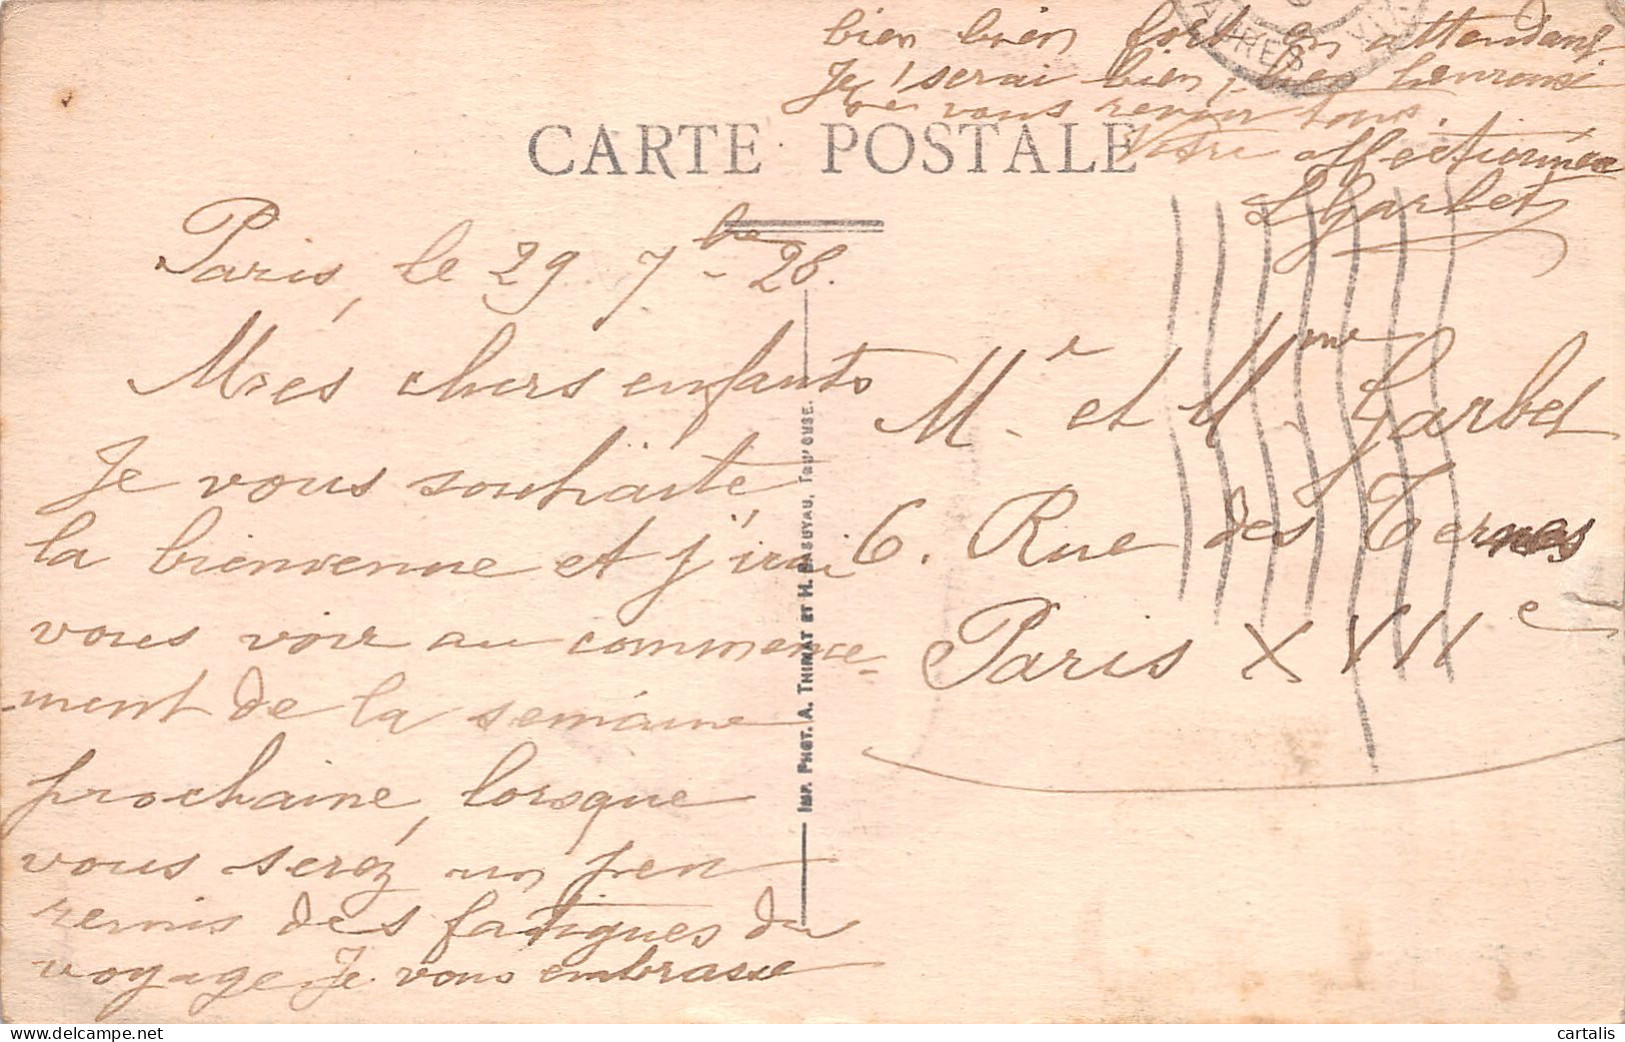 CARTE POSTALE
Paris, le 29 7bre 28.
Mes chers enfants
Je vous souhaite
la bienvenue et j'irai
vous voir au commence-
-ment de la semaine
prochaine, lorsque
vous serez un peu
remis des fatigues du
voyage Je vous embrasse
bien bien fort en attendant
Je serai bien heureuse
de vous revoir tous.
Votre affectionnée
Garbet
Mr. et Mme Garbet
6. Rue des Ternes
Paris XVIIe
IMP. PHOT. A. THIRIAT ET H. BASUYAU, TOULOUSE.
www.delcampe.net
cartalis